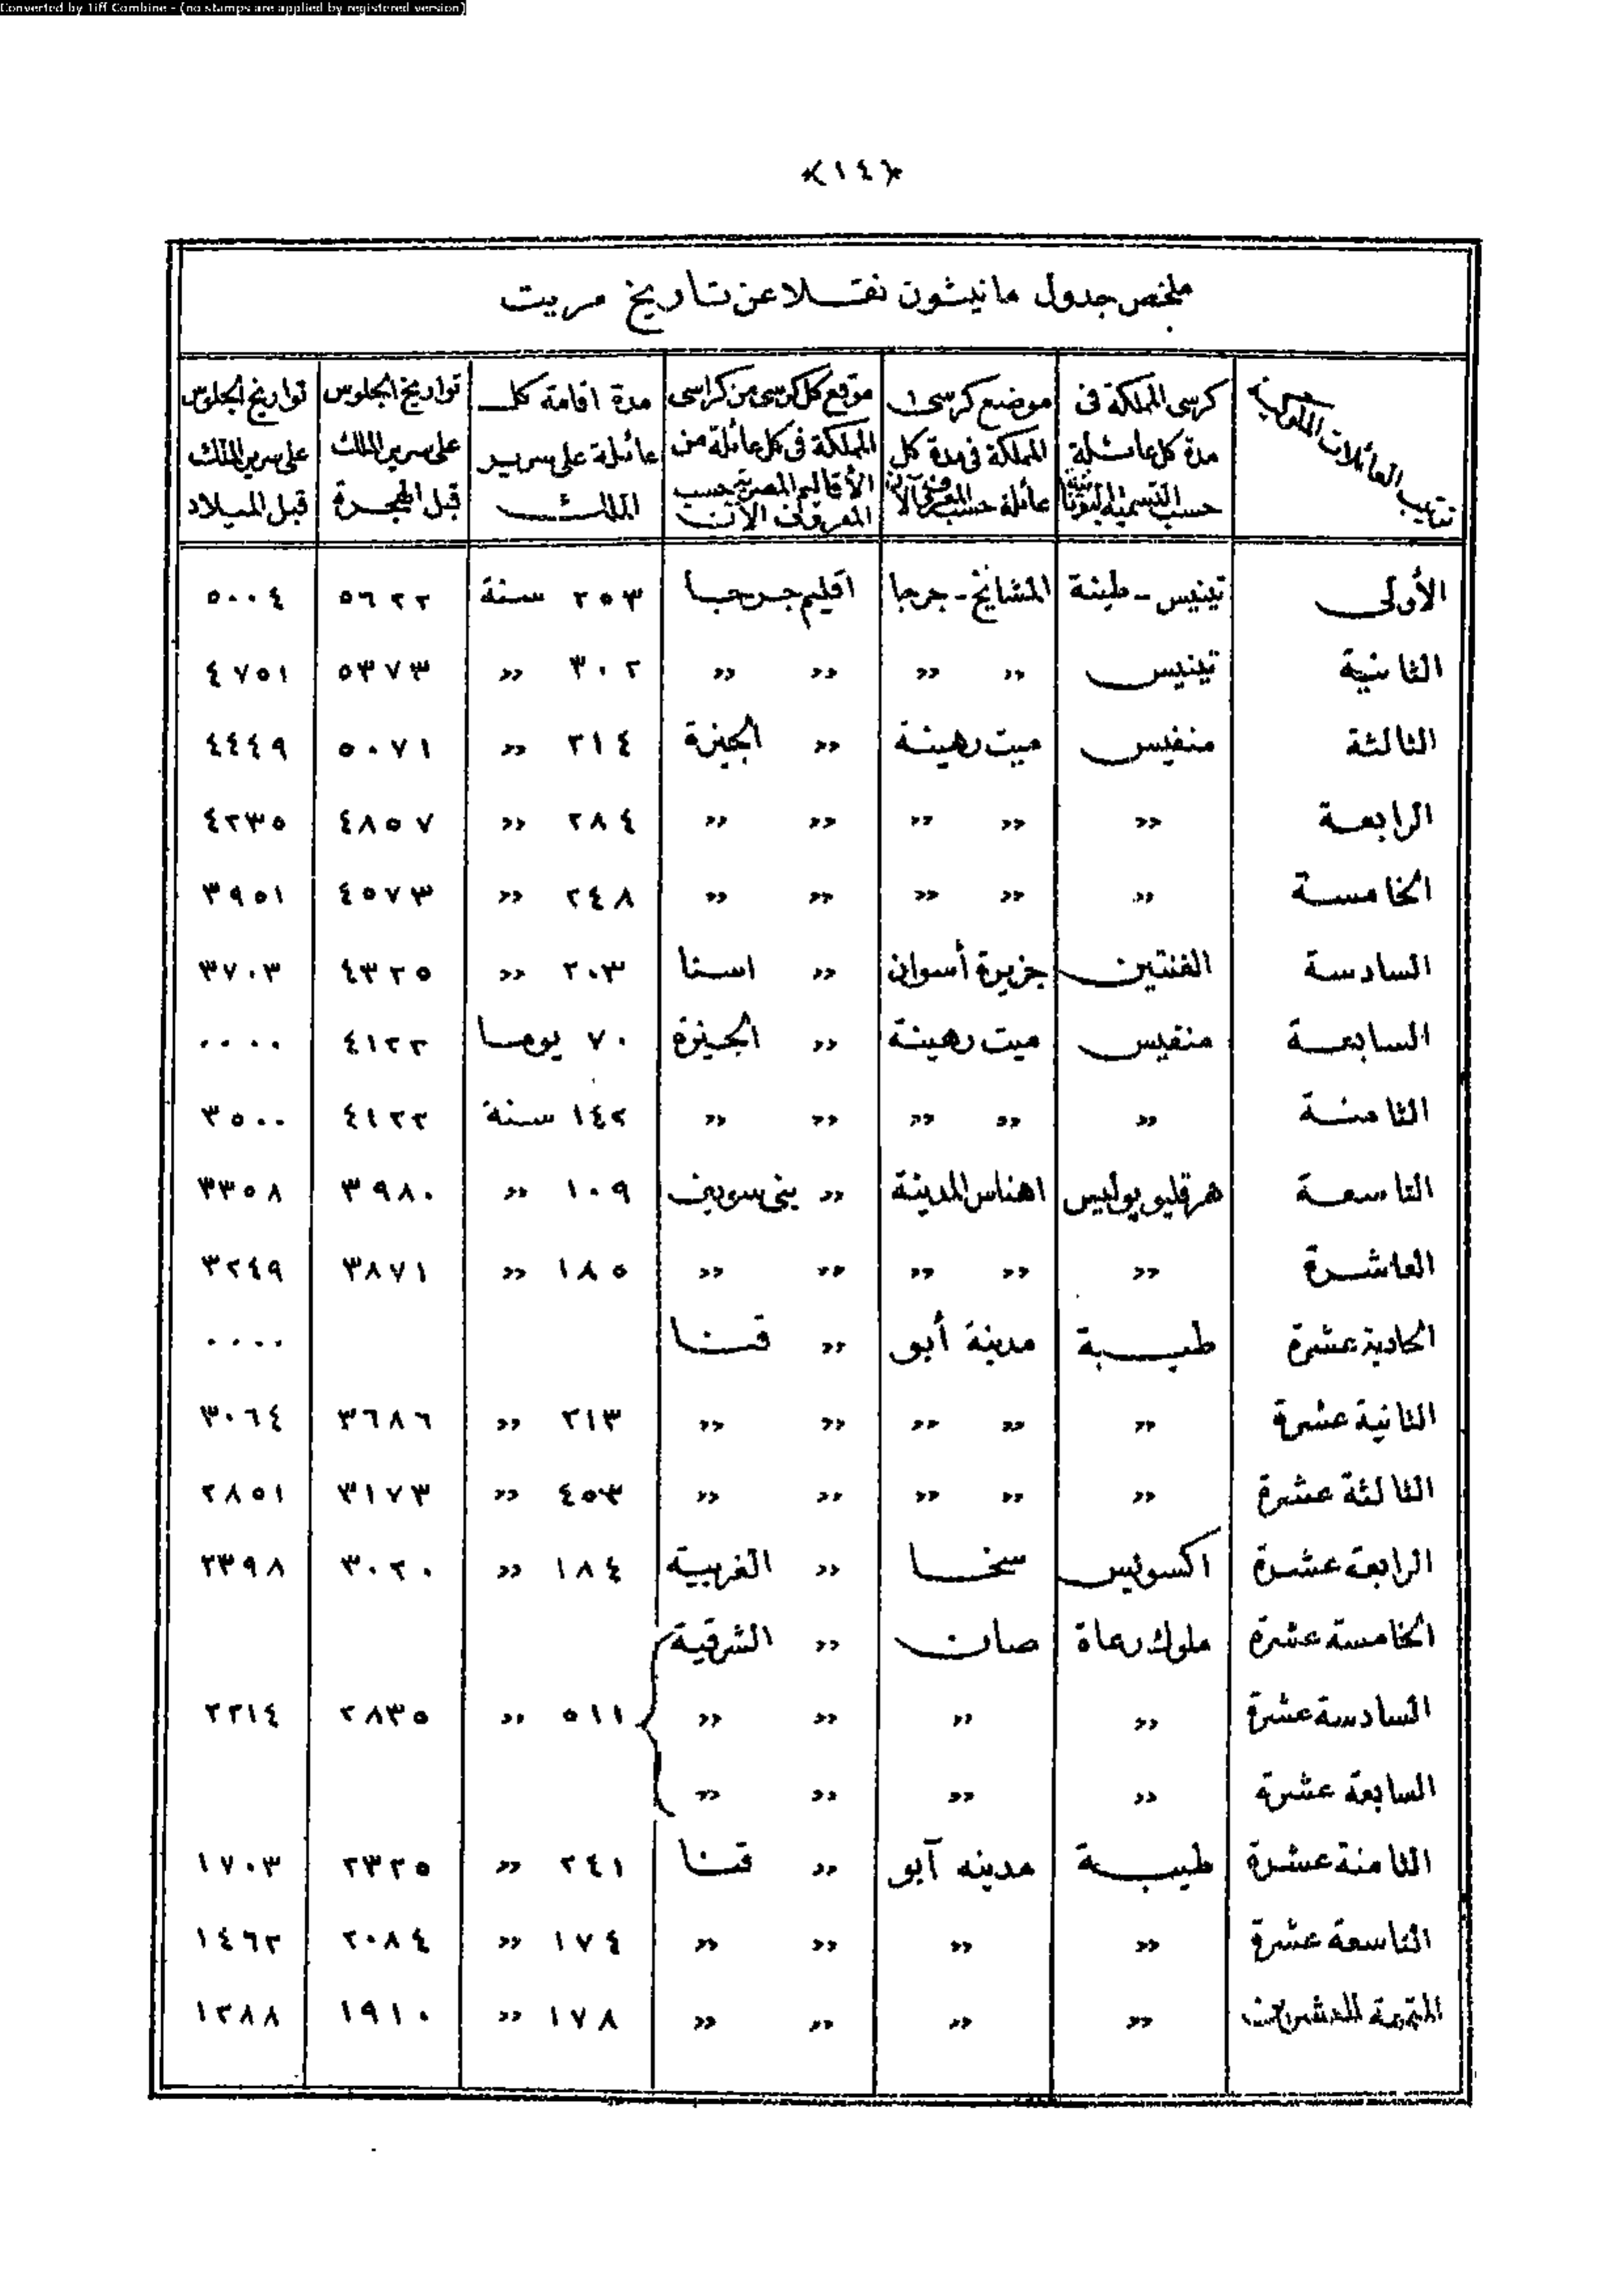 Converted by Tiff Combine - (no stamps are applied by registered version)
﴿١٤﴾
ملخص جدول مانيثون نقلا عن تاريخ مريت
ترتيب العائلات الملوكية | كرسى المملكة فى مدة كل عائلة حسب التسمية اليونانية | موضع كرسى المملكة فى مدة كل عائلة حسب المعروف الآن | موقع كل كرسى من كراسى المملكة فى كل عائلة من الأقاليم المصرية حسب المعروف الآن | مدة اقامة كل عائلة على سرير الملك | تواريخ الجلوس على سرير الملك قبل الهجرة | تواريخ الجلوس على سرير الملك قبل الميلاد
الأولى | تينيس - طينة | المشايخ - جرجا | اقليم جرجا | ٢٥٣ سنة | ٥٦٢٢ | ٥٠٠٤
الثانية | تينيس | » » | » » | ٣٠٢ » | ٥٣٧٣ | ٤٧٥١
الثالثة | منفيس | ميت رهينة | » الجيزة | ٢١٤ » | ٥٠٧١ | ٤٤٤٩
الرابعة | » | » » | » » | ٢٨٤ » | ٤٨٥٧ | ٤٢٣٥
الخامسة | » | » » | » » | ٢٤٨ » | ٤٥٧٣ | ٣٩٥١
السادسة | الفنتين | جزيرة أسوان | » اسنا | ٢٠٣ » | ٤٣٢٥ | ٣٧٠٣
السابعة | منفيس | ميت رهينة | » الجيزة | ٧٠ يوما | ٤١٢٢ | ٠٠٠٠
الثامنة | » | » » | » » | ١٤٢ سنة | ٤١٢٢ | ٣٥٠٠
التاسعة | هرقليوبوليس | اهناس المدينة | » بنى سويف | ١٠٩ » | ٣٩٨٠ | ٣٣٥٨
العاشرة | » | » » | » » | ١٨٥ » | ٣٨٧١ | ٣٢٤٩
الحادية عشرة | طيبة | مدينة أبو | » قنا | | | ٠٠٠٠
الثانية عشرة | » | » » | » » | ٢١٣ » | ٣٦٨٦ | ٣٠٦٤
الثالثة عشرة | » | » » | » » | ٤٥٣ » | ٣١٧٣ | ٢٨٥١
الرابعة عشرة | اكسويس | سخا | » الغربية | ١٨٤ » | ٣٠٢٠ | ٢٣٩٨
الخامسة عشرة | ملوك رعاة | صان | » الشرقية
السادسة عشرة | » | » | » » | ٥١١ » | ٢٨٣٥ | ٢٢١٤
السابعة عشرة | » | » | » »
الثامنة عشرة | طيبة | مدينه آبو | » قنا | ٢٤١ » | ٢٣٢٥ | ١٧٠٣
التاسعة عشرة | » | » | » » | ١٧٤ » | ٢٠٨٤ | ١٤٦٢
المتممة للعشرين | » | » | » » | ١٧٨ » | ١٩١٠ | ١٢٨٨